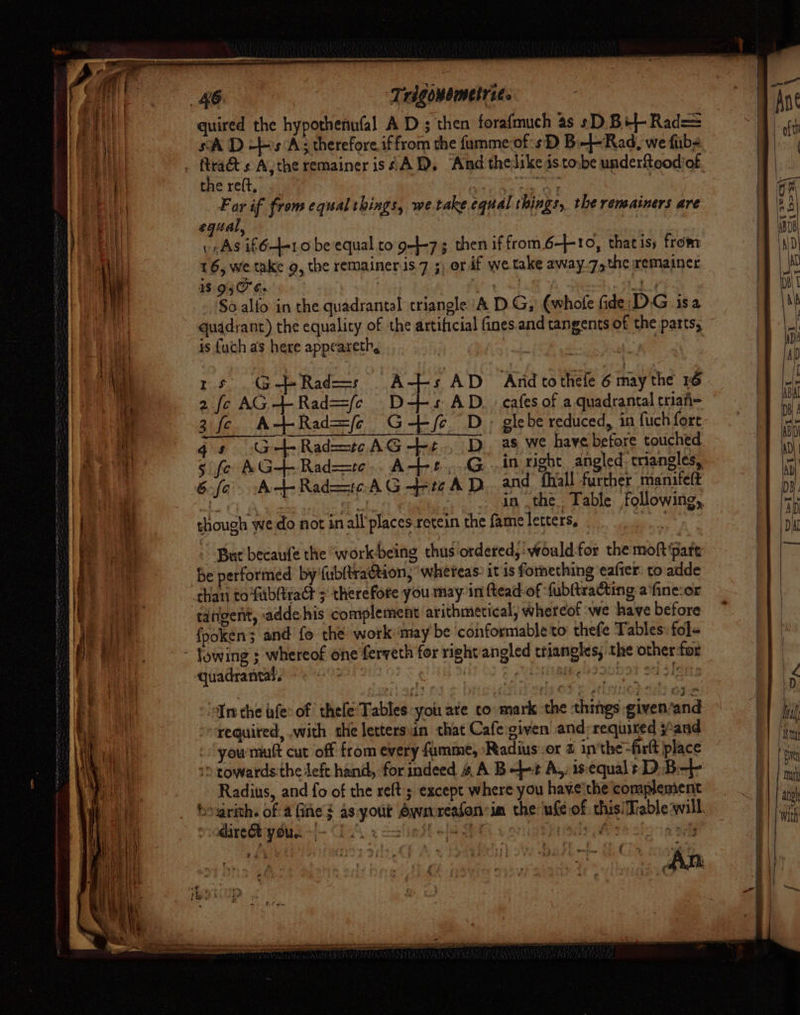 46 Trigonometrie.
quired the hypothenuſal A D ; then foraſmuch as sD B+Rad=
sA D +s A; therefore if from the ſumme of sD B+Rad, we ſub-
ſtract s A, the remainer is sAD. And the like is to be underſtood of
the reſt,
For if from equal things, we take equal things, the remainers are
equal,
As if 6+10 be equal to 9+7 ; then if from 6+10, that is, from
16, we take 9, the remainer is 7 ; or if we take away 7, the remainer
is 9, &c.
So alſo in the quadrantal triangle A D G, (whoſe ſide D G is a
quadrant) the equality of the artificial ſines and tangents of the parts,
is ſuch as here appeareth,
1 s G+Rad=s A+s AD And to theſe 6 may the 16
2 ſc AG+Rad=ſc D+s AD caſes of a quadrantal trian-
3 ſc A+Rad=ſc G+ſc D glebe reduced, in ſuch ſort
4 s G+Rad=tc AG+t D as we have before touched
5 ſc AG+Rad=tc A+t G in right angled triangles,
6 ſc A+Rad=tc AG+tc A D and ſhall further manifeſt
in the Table following,
though we do not in all places retein the ſame letters,
But becauſe the work being thus ordered, would for the moſt part
be performed by ſubſtraction, whereas it is ſomething eaſier to adde
than to ſubſtract ; therefore you may in ſtead of ſubſtracting a ſine or
tangent, adde his complement arithmetical, whereof we have before
ſpoken ; and ſo the work may be conformable to theſe Tables fol-
lowing ; whereof one ſerveth for right angled triangles, the other for
quadrantal.
In the uſe of theſe Tables you are to mark the things given and
required, with the letters in that Caſe given and required ; and
you muſt cut off from every ſumme, Radius or 1 in the firſt place
towards the left hand, for indeed s A B+t A, is equal t D B+
Radius, and ſo of the reſt ; except where you have the complement
arith. of a ſine ; as your own reaſon in the uſe of this Table will
direct you.
An